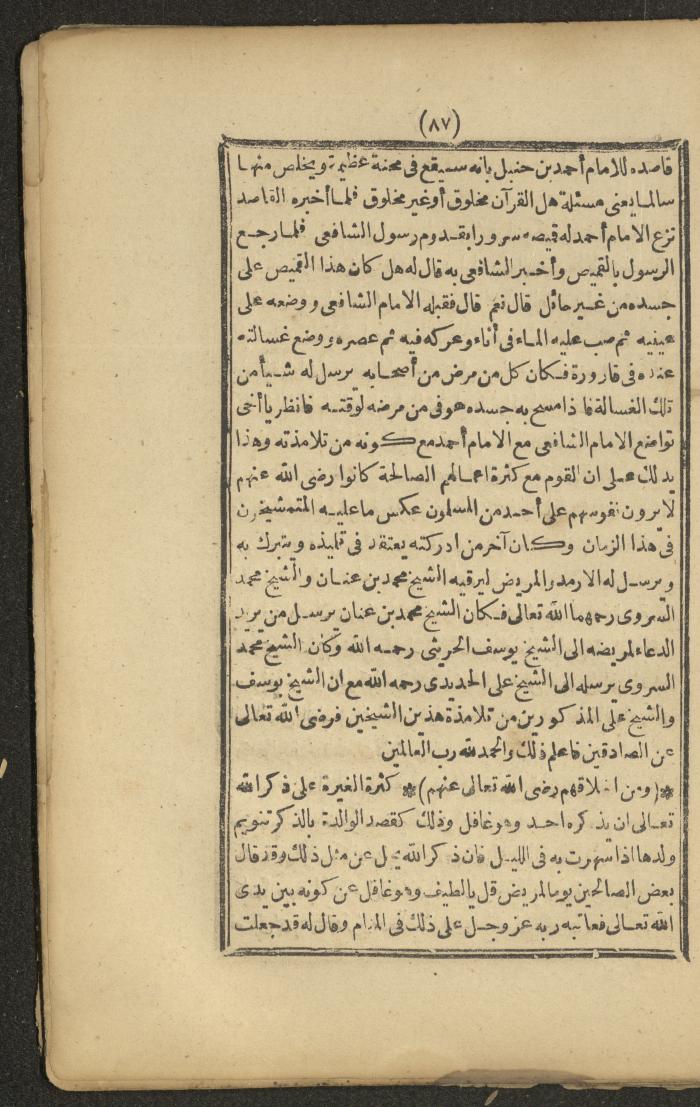 (٨٧)
قاصده للامام أحمد بن حنبل بانه سيقع فى محنة عظيمة ويخلص منها
سالما يعنى مسئلة هل القرآن مخلوق أوغير مخلوق فلما أخبره القاصد
نزع الامام أحمد له قميصه سرورا بقدوم رسول الشافعى فلما رجع
الرسول بالقميص وأخبر الشافعى به قال له هل كان هذا القميص على
جسده من غير حائل قال نعم قال فقبله الامام الشافعى ووضعه على
عينيه ثم صب عليه الماء فى أناء وعركه فيه ثم عصره ووضع غسالته
عنده فى قارورة فكان كل من مرض من أصحابه يرسل له شيأ من
تلك الغسالة فاذا مسح به جسده عوفى من مرضه لوقته فانظر يا أخى
تواضع الامام الشافعى مع الامام أحمد مع كونه من تلامذته وهذا
يدلك على ان القوم مع كثرة اعمالهم الصالحة كانوا رضى الله عنهم
لا يرون نفوسهم على أحد من المسلمون عكس ما عليه المتمشيخون
فى هذا الزمان وكان آخر من ادركته يعتقد فى تلميذه ويتبرك به
ويرسل له الارمد والمريض ليرقيه الشيخ محمد بن عنان والشيخ محمد
السروى رحمهما الله تعالى فكان الشيخ محمد بن عنان يرسل من يريد
الدعاء لمريضه الى الشيخ يوسف الحريثى رحمه الله وكان الشيخ محمد
السروى يرسله الى الشيخ على الحديدى رحمه الله مع ان الشيخ يوسف
والشيخ على المذكورين من تلامذة هذين الشيخين فرضى الله تعالى
عن الصادقين فاعلم ذلك والحمد لله رب العالمين
*(ومن اخلاقهم رضى الله تعالى عنهم)* كثرة الغيرة على ذكر الله
تعالى ان يذكره احد وهو غافل وذلك كقصد الوالدة بالذكر تنويم
ولدها اذا سهرت به فى الليل فان ذكر الله يجل عن مثل ذلك وقد قال
بعض الصالحين يوما لمريض قل يالطيف وهو غافل عن كونه بين يدى
الله تعالى فعاتبه ربه عز وجل على ذلك فى المنام وقال له قد جعلت